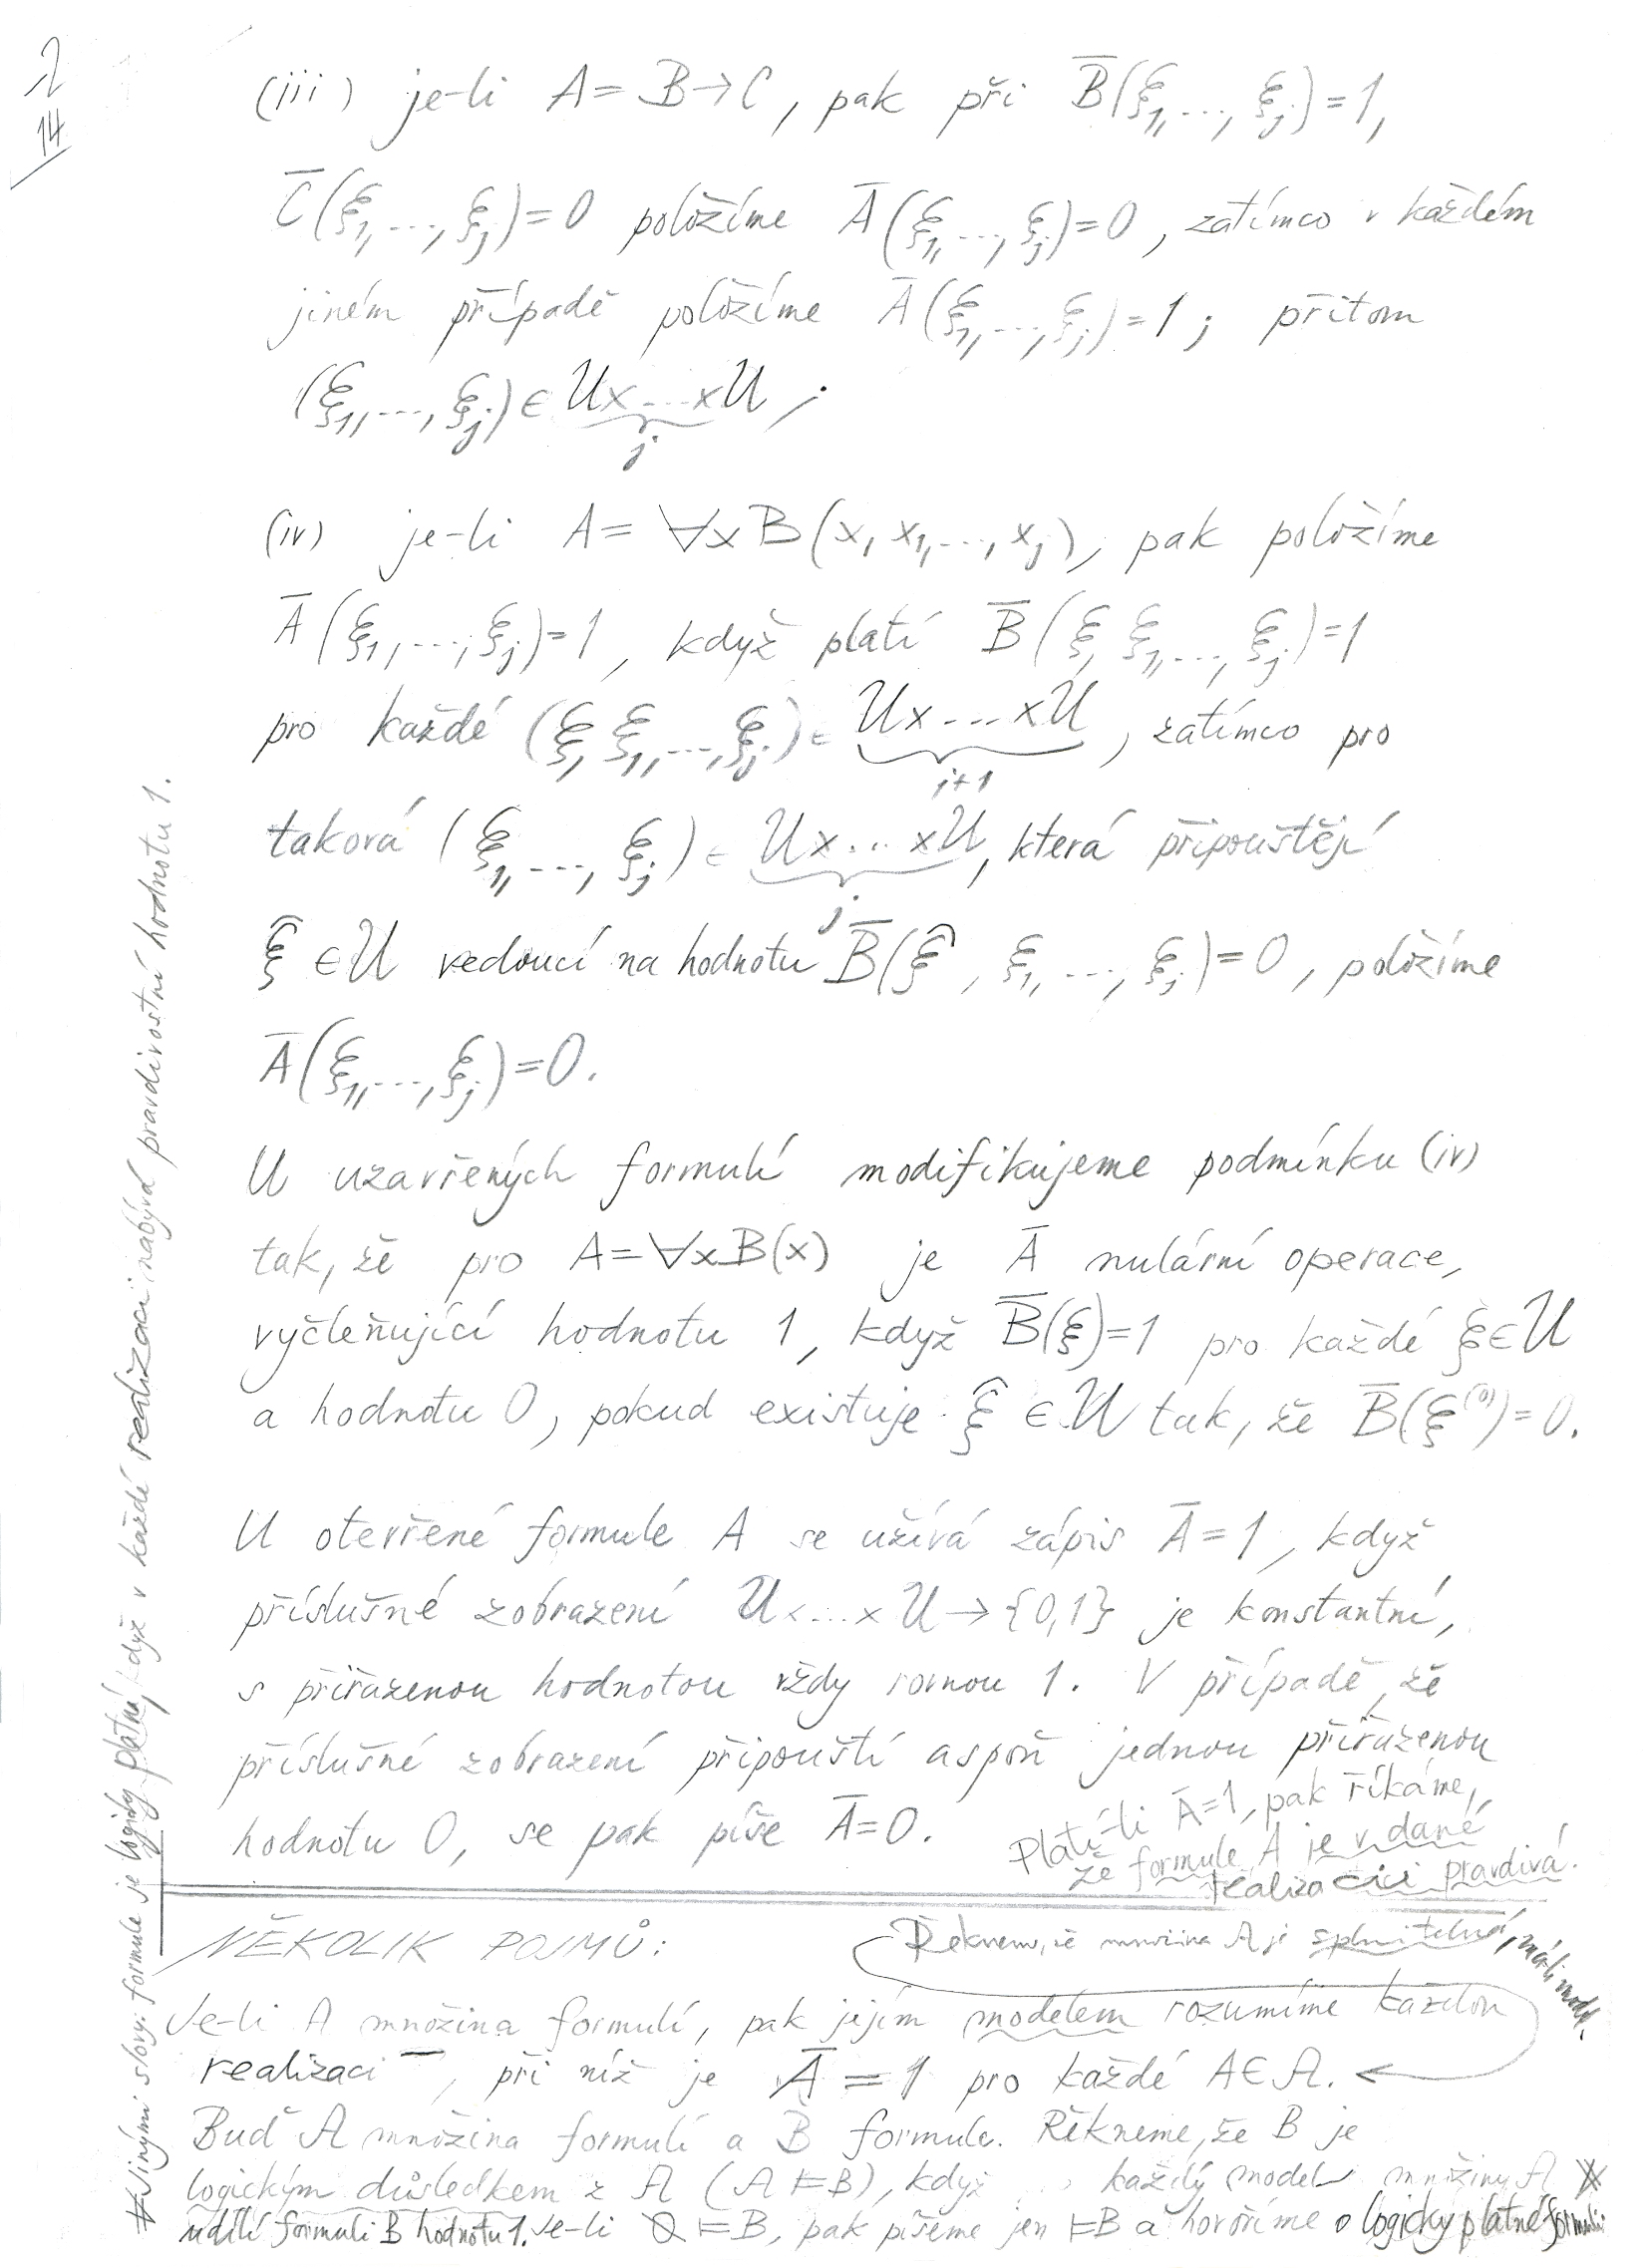 2/14
(iii) je-li A = B→C, pak při B̅(ξ₁,...,ξⱼ)=1,
C̅(ξ₁,...,ξⱼ)=0 položíme A̅(ξ₁,...,ξⱼ)=0, zatímco v každém
jiném případě položíme A̅(ξ₁,...,ξⱼ)=1; přitom
(ξ₁,...,ξⱼ)∈U×...×U;
j
(iv) je-li A = ∀xB(x,x₁,...,xⱼ), pak položíme
A̅(ξ₁,...,ξⱼ)=1, když platí B̅(ξ,ξ₁,...,ξⱼ)=1
pro každé (ξ,ξ₁,...,ξⱼ)∈U×...×U, zatímco pro
j+1
taková (ξ₁,...,ξⱼ)∈U×...×U, která připouštějí
j
ξ̂∈U vedoucí na hodnotu B̅(ξ̂,ξ₁,...,ξⱼ)=0, položíme
A̅(ξ₁,...,ξⱼ)=0.
U uzavřených formulí modifikujeme podmínku (iv)
tak, že pro A=∀xB(x) je A̅ nulární operace,
vyčleňující hodnotu 1, když B̅(ξ)=1 pro každé ξ∈U
a hodnotu 0, pokud existuje ξ̂∈U tak, že B̅(ξ⁽⁰⁾)=0.
U otevřené formule A se užívá zápis A̅=1, když
příslušné zobrazení U×...×U→{0,1} je konstantní,
s přiřazenou hodnotou vždy rovnou 1. V případě, že
příslušné zobrazení připouští aspoň jednou přiřazenou
hodnotu 0, se pak píše A̅=0.
Platí-li A̅=1, pak říkáme,
že formule A je v dané
realizaci pravdivá.
NĚKOLIK POJMŮ:
Řekneme, že množina A je splnitelná, má-li model.
Je-li A množina formulí, pak jejím modelem rozumíme každou
realizaci ‾, při níž je A̅ = 1 pro každé A∈A.
Buď A množina formulí a B formule. Řekneme, že B je
logickým důsledkem z A (A⊨B), když každý model množiny A
udílí formuli B hodnotu 1. Je-li ∅⊨B, pak píšeme jen ⊨B a hovoříme o logicky platné formuli
# Jinými slovy: formule je logicky platná, když v každé realizaci nabývá pravdivostní hodnotu 1.